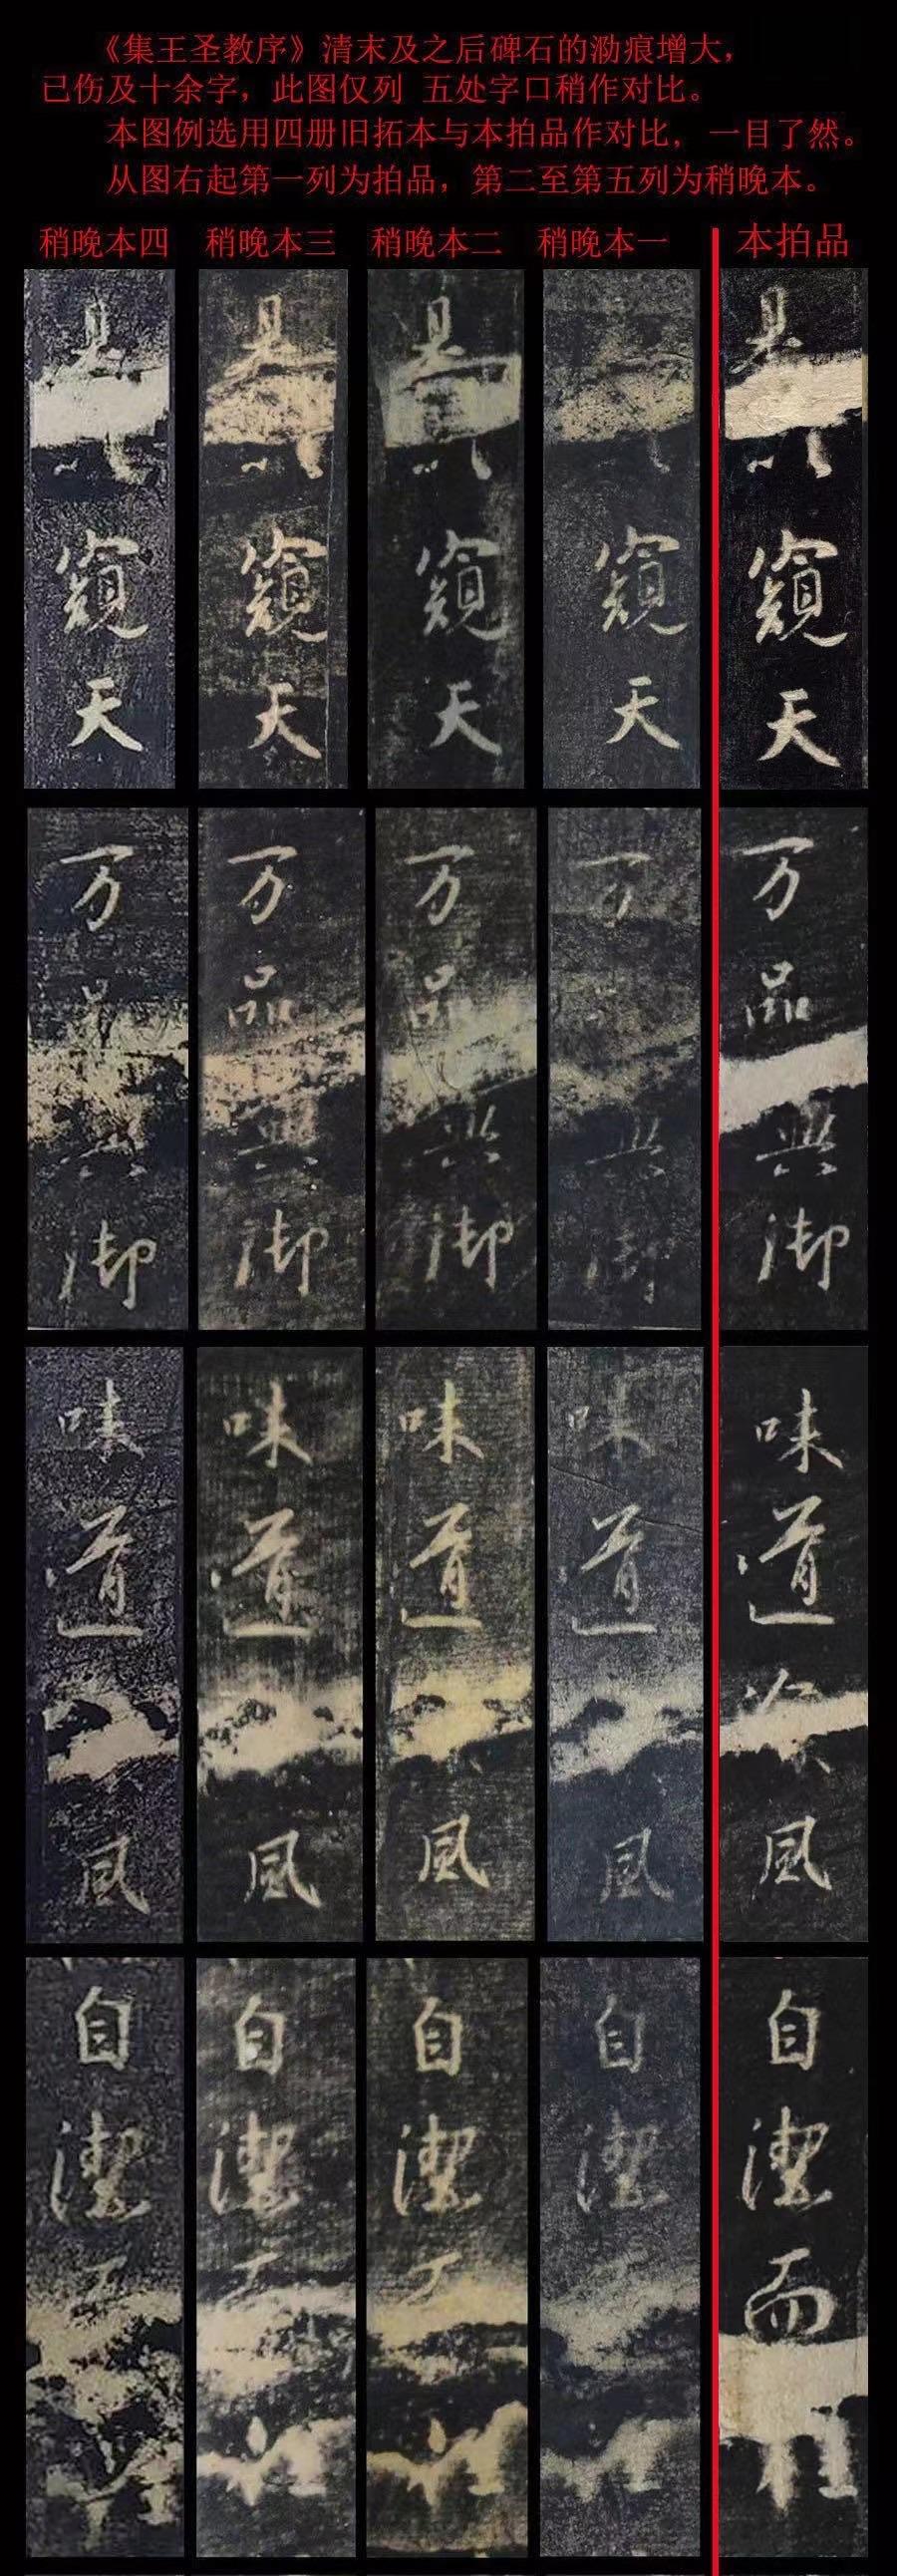 《集王圣教序》清末及之后碑石的泐痕增大，
已伤及十余字，此图仅列 五处字口稍作对比。
本图例选用四册旧拓本与本拍品作对比，一目了然。
从图右起第一列为拍品，第二至第五列为稍晚本。
稍晚本四 稍晚本三 稍晚本二 稍晚本一 本拍品
是
窺
天
是
窺
天
是
窺
天
窺
天
是
窺
天
万
御
万
品
御
万
品
典
御
万
典
御
万
品
典
御
味
道
風
味
道
風
味
道
風
味
道
風
味
道
風
自
潔
自
潔
自
潔
自
潔
自
潔
而